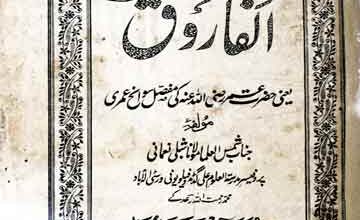 الفاروق
یعنی حضرت عمر رضی اللہ عنہ کی مفصل سوانح عمری
مؤلفہ
جناب شمس العلما مولانا شبلی نعمانی
پروفیسر مدرسۃ العلوم علی گڈھ فیلو یونیورسٹی الہ آباد